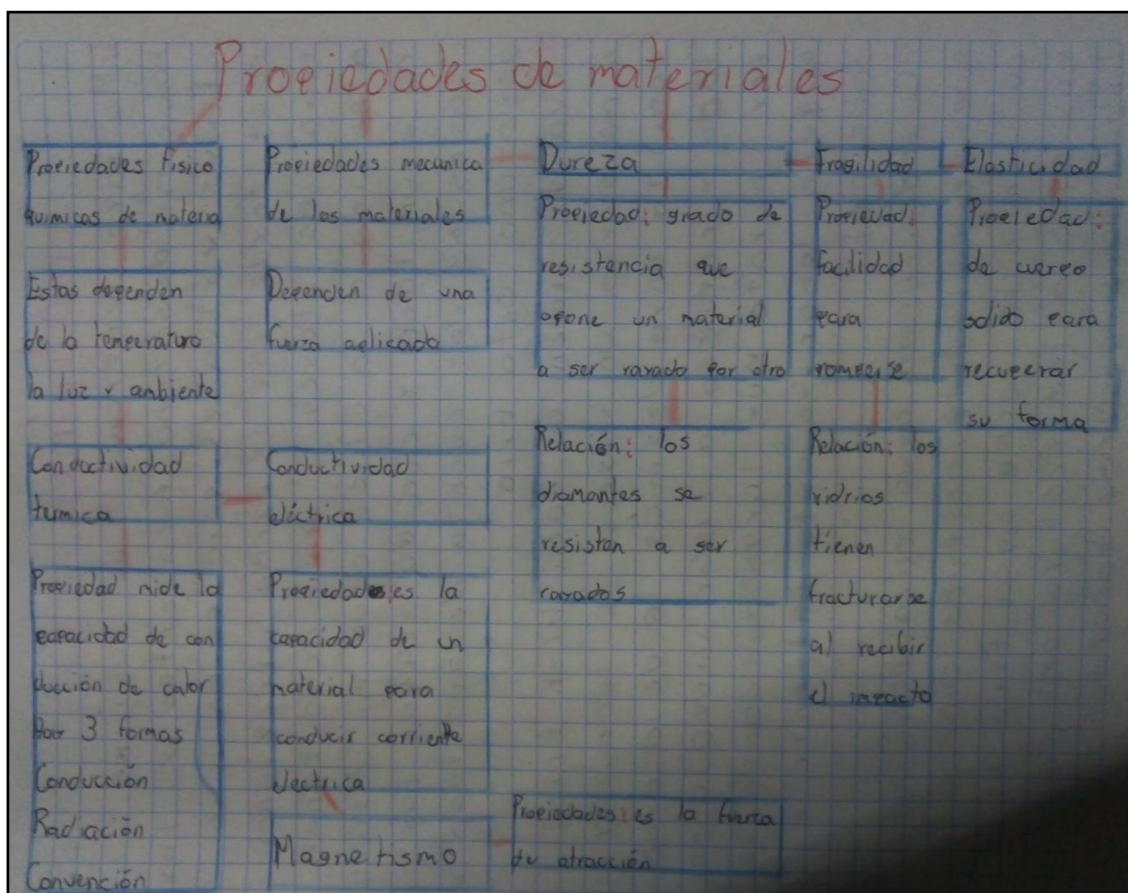 Propiedades de materiales
Propiedades fisico
quimicas de materia
Estas dependen
de la temperatura
la luz y ambiente
Conductividad
termica
Propiedad mide la
capacidad de con
ducción de calor
Por 3 formas
Conducción
Radiación
Convención
Propiedades mecanica
de los materiales
Dependen de una
fuerza aplicada
Conductividad
eléctrica
Propiedades: es la
capacidad de un
material para
conducir corriente
electrica
Magnetismo
Propiedades: es la fuerza
de atracción
Dureza
Propiedad: grado de
resistencia que
opone un material
a ser rayado por otro
Relación: los
diamantes se
resistan a ser
rayados
Fragilidad
Propiedad:
facilidad
para
romperse
Relación: los
vidrios
tienen
fracturarse
al recibir
el impacto
Elasticidad
Propiedad:
de cuerpo
solido para
recuperar
su forma